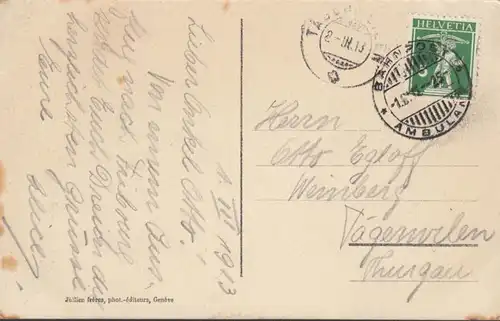 1. III 1913
Lieber Onkel Otto!
Von einem Aus-
flug nach Fribourg
sendet Euch Dreien die
herzlichsten Grüsse
Eure
Herrn
Otto Egloff
Weinberg
Tägerwilen
Thurgau
HELVETIA
5
2. III. 13
BAHNPOST
AMBULANT
Jullien frères, phot.-éditeurs, Genève